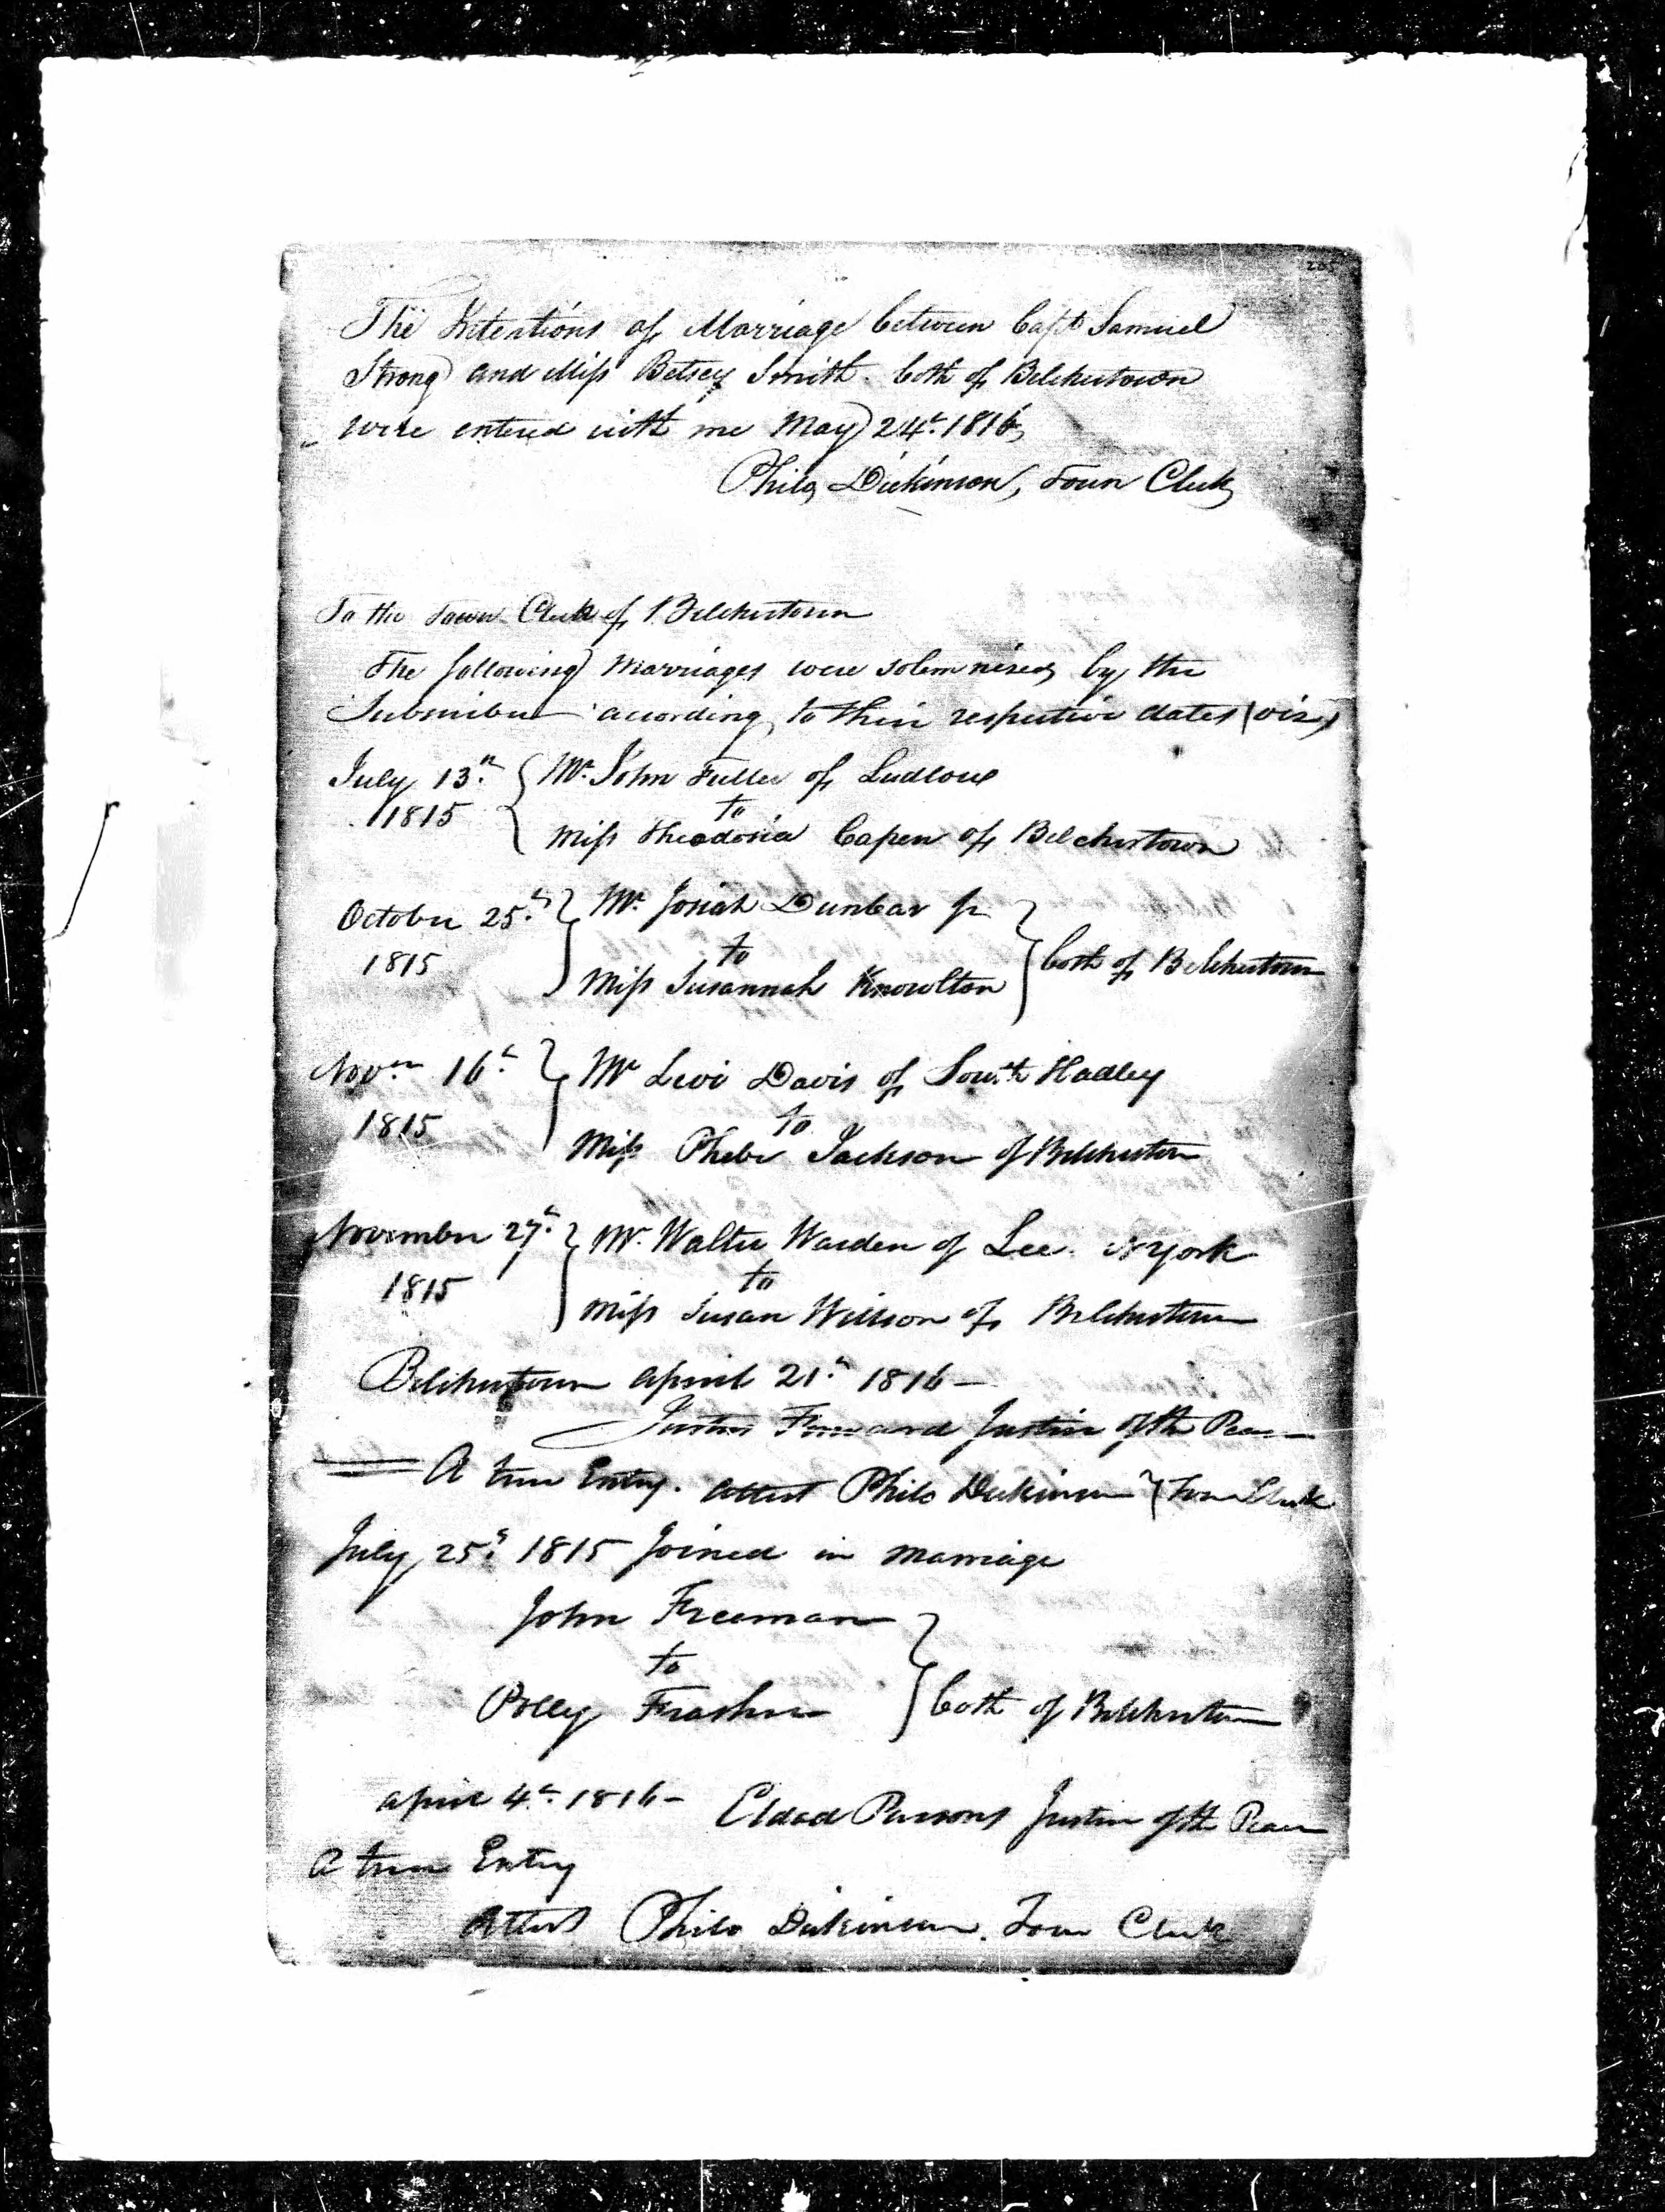 205
The Intentions of Marriage between Capt Samuel
Strong and Miss Betsey Smith both of Belchertown
were entered with me May 24th 1816
Philo Dickinson, Town Clerk
To the Town Clerk of Belchertown
The following Marriages were solemnised by the
Subscriber according to their respective dates (viz)
July 13th
1815
Mr. John Fuller of Ludlow
to
Miss Theodosia Capen of Belchertown
October 25th
1815
Mr. Josiah Dunbar Jr
to
Miss Susannah Knowlton
both of Belchertown
Novem 16th
1815
Mr Levi Davis of South Hadley
to
Miss Phebe Jackson of Belchertown
November 27th
1815
Mr. Walter Warden of Lee. N York
to
Miss Susan Willson of Belchertown
Belchertown April 21st 1816 —
Justus Forward Justice of the Peace
A true Entry. Attest Philo Dickinson Town Clerk
July 25th 1815 Joined in marriage
John Freeman
to
Polly
both of Belchertown
April 4th 1816 - Eldad Parsons Justice of the Peace
A true Entry
Attest Philo Dickinson. Town Clerk